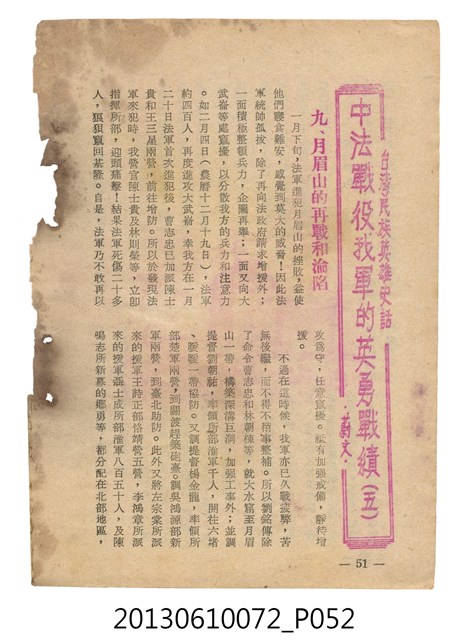 台灣民族英雄史話
中法戰役我軍的英勇戰績(五)
·蔚文·
九、月眉山的再戰和淪陷
一月下旬，法軍進犯月眉山的經敗，益使
他們寢食難安，感覺到莫大的威脅！因此法
軍統帥孤拔，除了再向法政府請求增援外；
一面積極整頓兵力，企圖再舉；一面又向大
武崙等處竄擾，以分散我方的兵力和注意力
。如二月四日（農曆十二月十九日），法軍
約四百人，再度進攻大武崙，幸我方在一月
二十日法軍首次進犯後，曹志忠已加派陳士
貴和王三星兩營，前往增防。所以於發現法
軍來犯時，我營官陳士貴及林則榮等，立即
指揮所部，迎頭痛擊！結果法軍死傷二十多
人，狼狽竄回基隆。自是，法軍乃不敢再以
攻為守，任意竄擾。祇有加強戒備，靜待增
援。
不過在這時候，我軍亦已久戰疲勞，苦
無後繼，而不得不稍事整補。所以劉銘傳除
了命令曹志忠和林朝棟等，就大水窟至月眉
山一帶，構築深溝巨洞，加強工事外；並調
提督劉朝祐，率領所部淮軍千人，開往六堵
、暖暖一帶協防。又調提督楊金龍，率領所
部楚軍兩營，到關渡趕築砲臺。調吳鴻源部新
軍兩營，到臺北助防。此外又將左宗棠所派
來的援軍王詩正部恪靖營五營，李鴻章所派
來的援軍聶士成所部淮軍八百五十人，及陳
鳴志所新募的鄉勇等，都分配在北部地區，
— 51 —
20130610072_P052